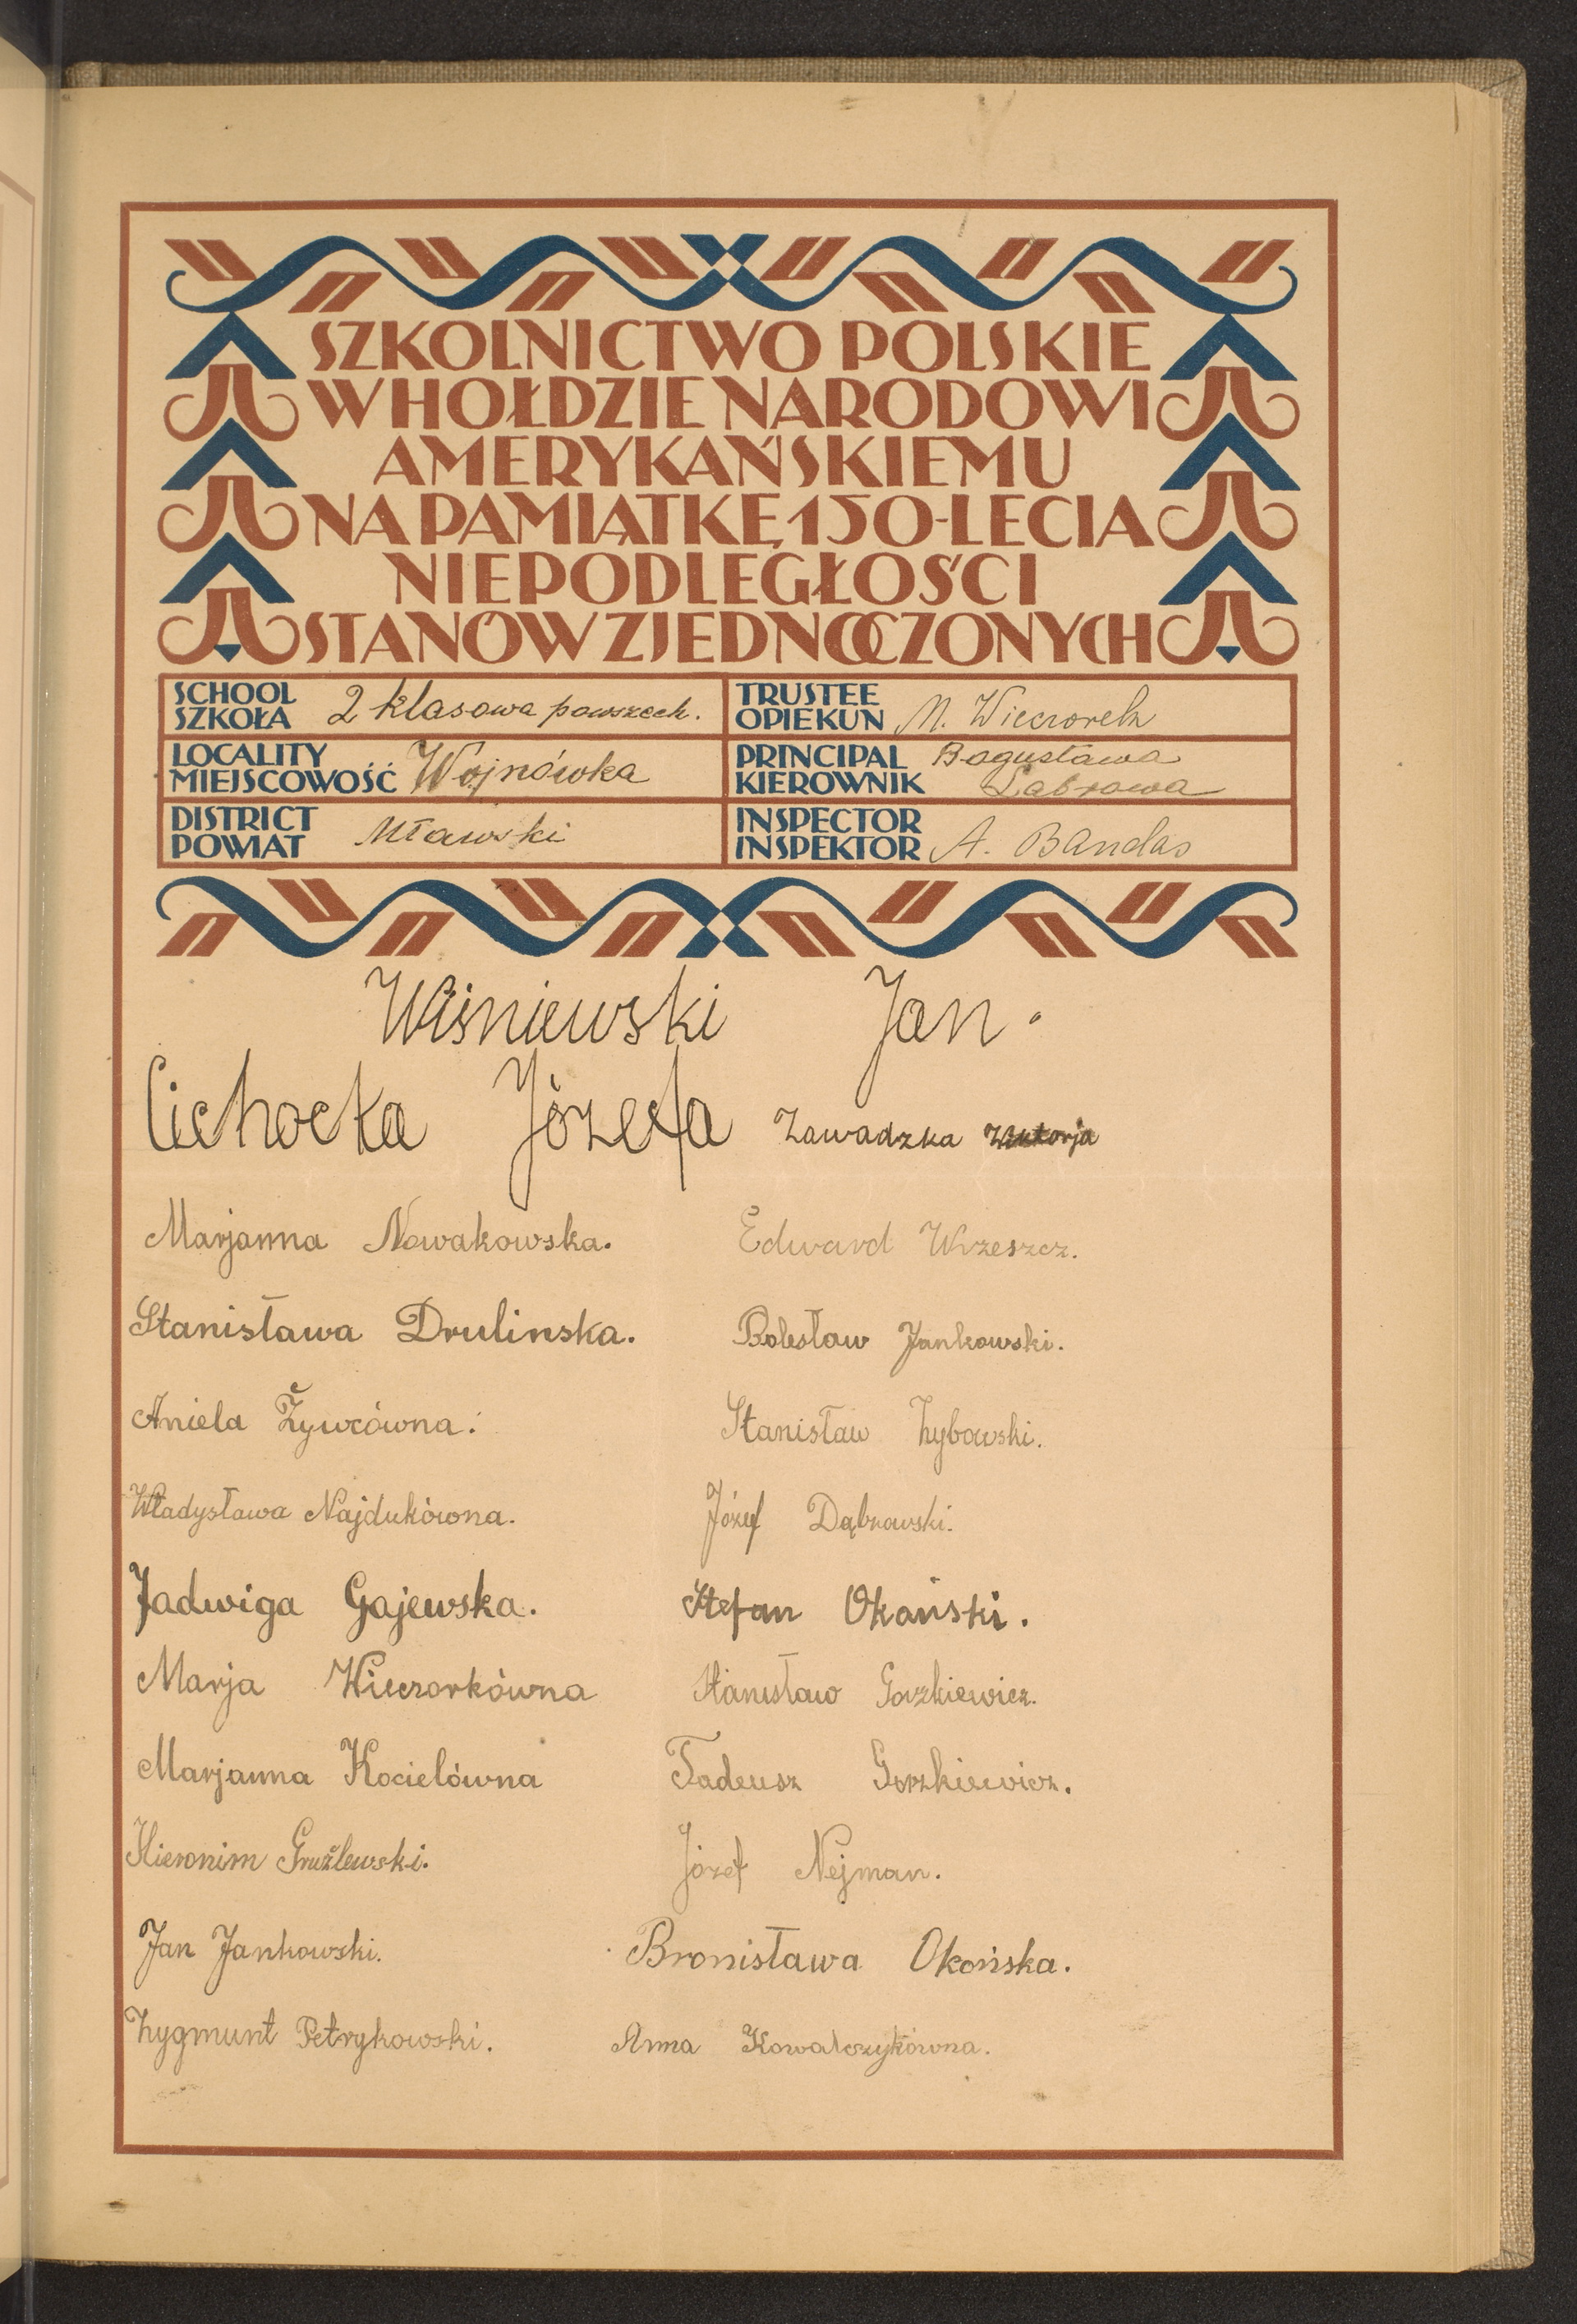 SZKOLNICTWO POLSKIE
W HOŁDZIE NARODOWI
AMERYKAŃSKIEMU
NA PAMIĄTKĘ 150-LECIA
NIEPODLEGŁOŚCI
STANÓW ZJEDNOCZONYCH
SCHOOL
SZKOŁA 2 klasowa powszech.
TRUSTEE
OPIEKUN M. Wieczorek
LOCALITY
MIEJSCOWOŚĆ Wojnówka
PRINCIPAL Bogusława
KIEROWNIK Labrowa
DISTRICT
POWIAT Mławski
INSPECTOR
INSPEKTOR A. Bandas
Wiśniewski Jan.
Cichocka Józefa Zawadzka Wiktorja
Marjanna Nowakowska. Edward Wrzeszcz.
Stanisława Drulinska. Bolesław Jankowski.
Aniela Żywcówna. Stanisław Zybowski.
Władysława Najdukówna. Józef Dąbrowski.
Jadwiga Gajewska. Stefan Okański.
Marja Wieczorkówna Stanisław Gorzkiewicz.
Marjanna Kocielówna Tadeusz Gorzkiewicz.
Hieronim Gruźlewski. Józef Nejman.
Jan Jankowski. Bronisława Okońska.
Zygmunt Petrykowski. Anna Kowalczykówna.